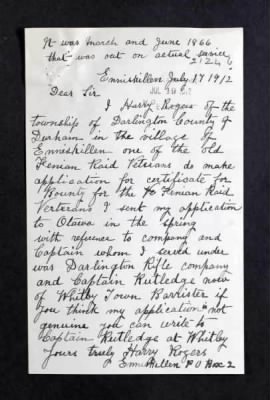 It was March and June 1866
that was out on actual service
21246
Enniskillen July 17 1912
JUL 20
Dear Sir
I Harry Rogers of the
township of Darlington County of
Durham in the village of
Enniskillen one of the old
Fenian Raid Vetrans do make
application for certificate for
Bounty for the Fenian Raid
Verterans I sent my application
to Otawa in the spring
with referance to company and
Captain whom I served under
was Darlington Rifle company
and Captain Rutledge now
of Whitby Town Barrister if
you think my application not
genuine you can write to
Captain Rutledge at Whitby
Yours truly Harry Rogers
Enniskillen P O Box 2